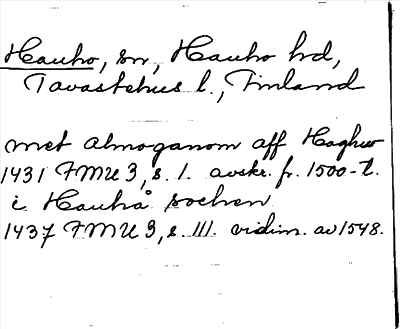 Hauho, sn, Hauho hd,
Tavastehus l., Finland
met almoganom aff Haghw
1431 FMU 3, s. 1. avskr. fr. 1500-t.
i Hauhå sochen
1437 FMU 3, s. 111. vidim. av 1548.